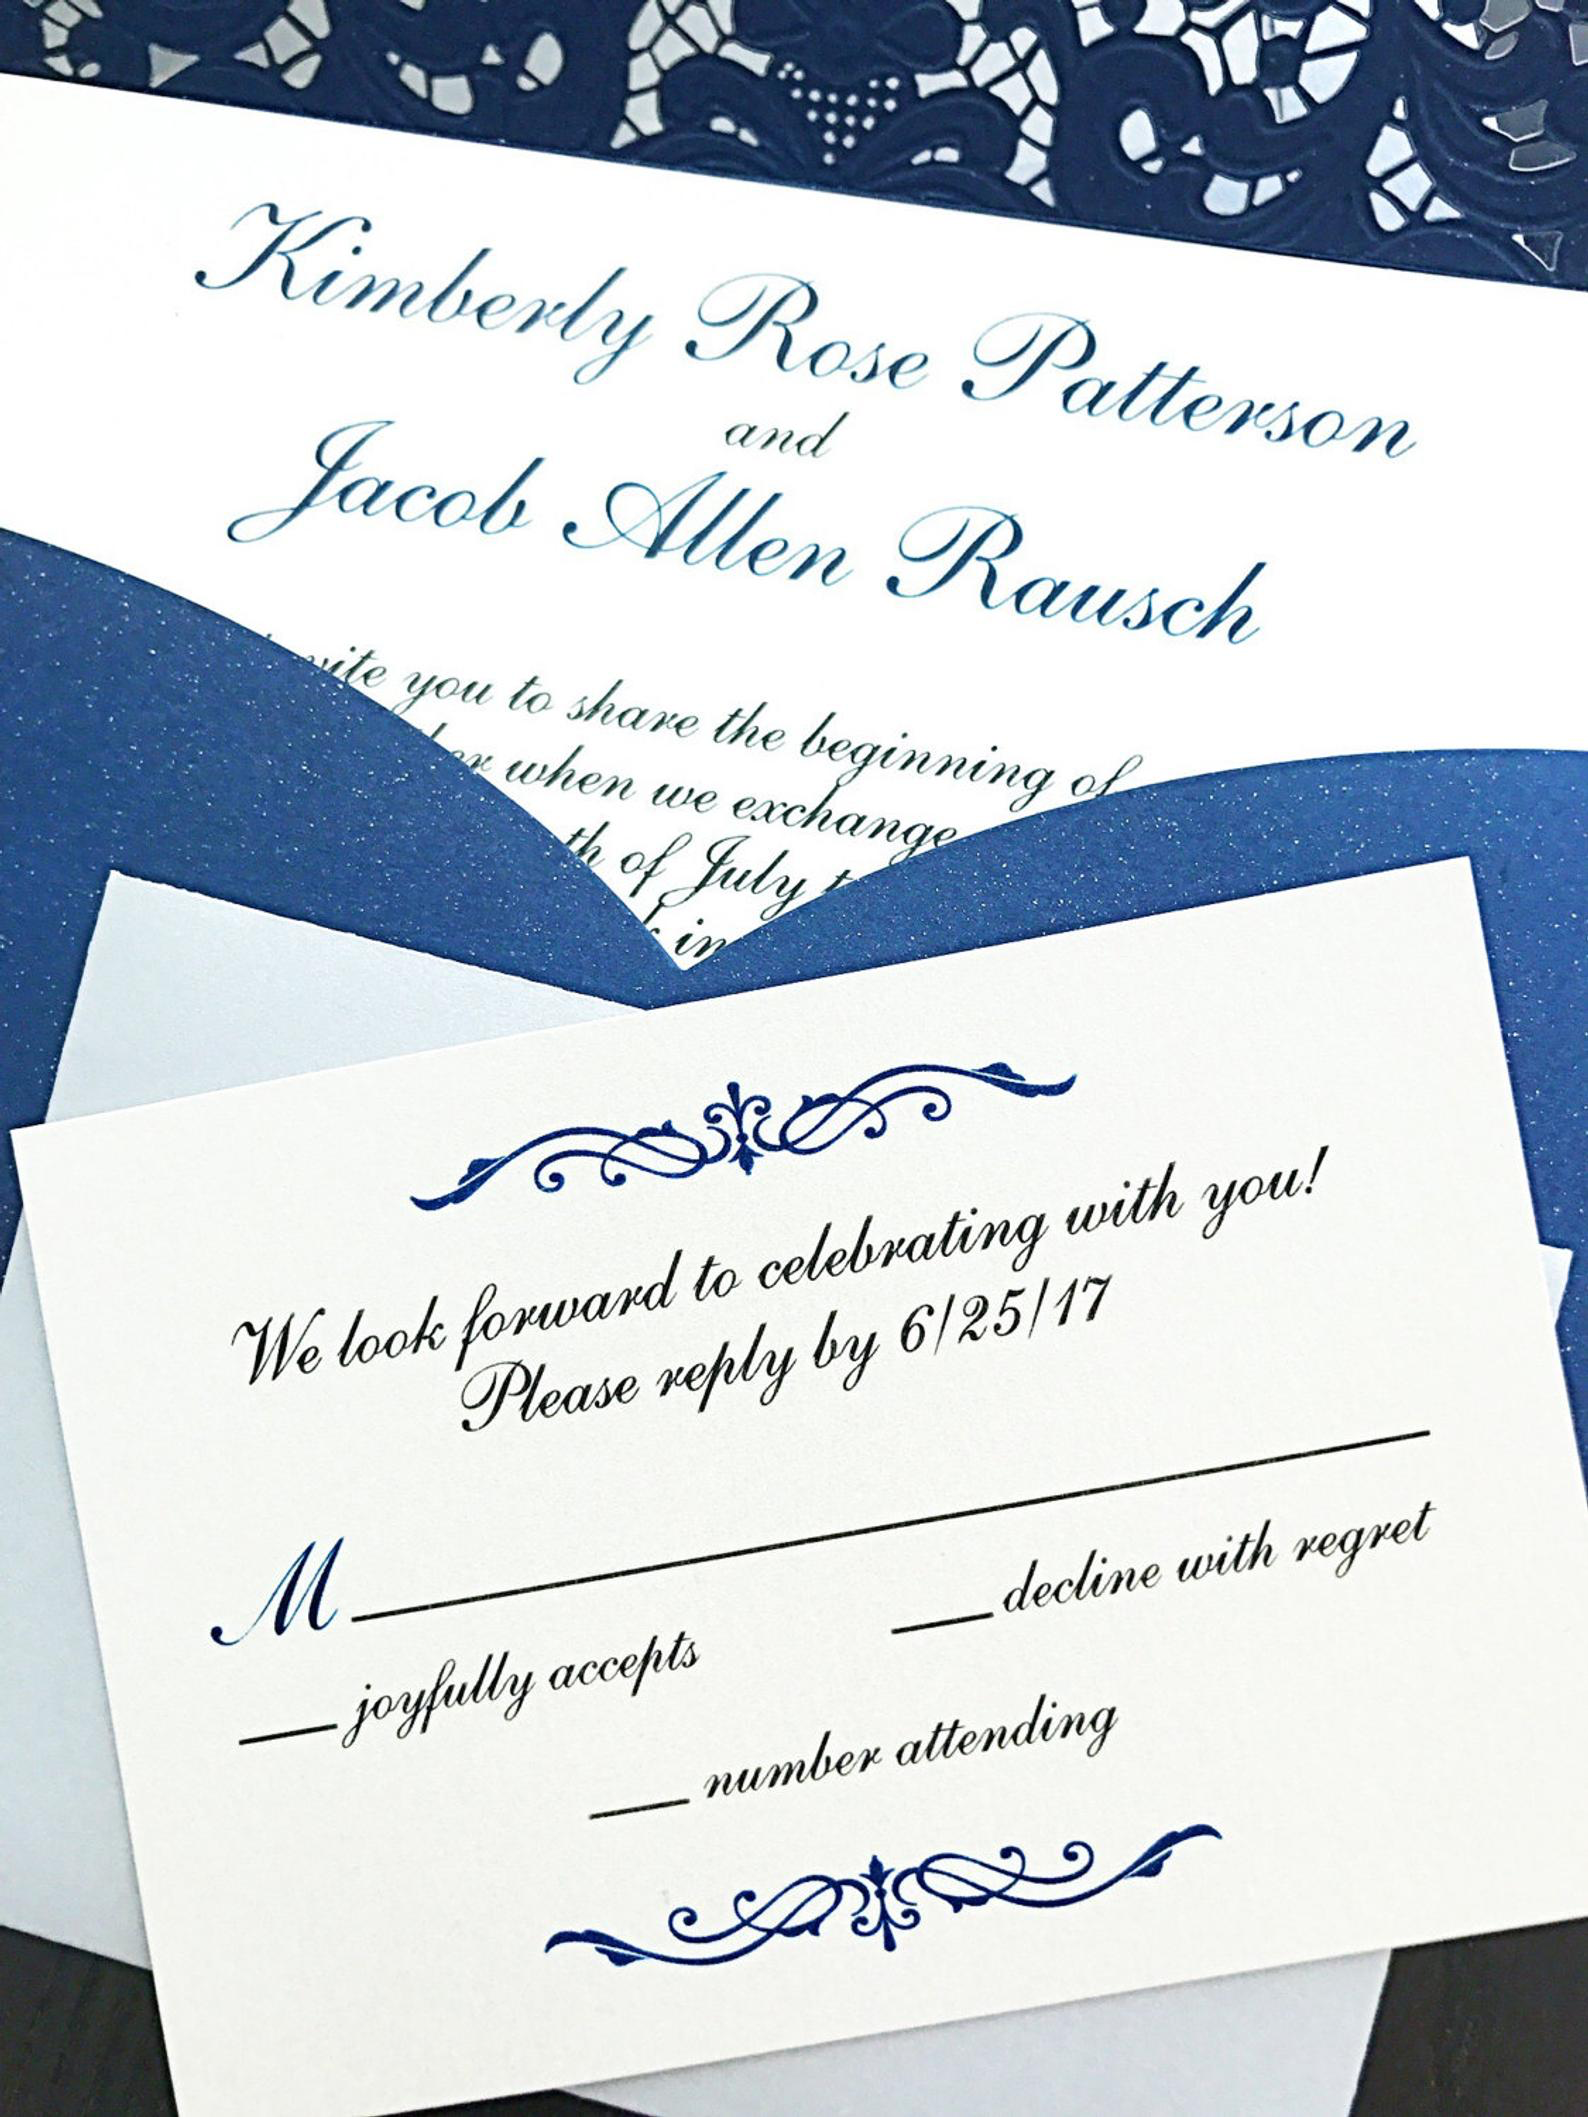 Kimberly Rose Patterson
and
Jacob Allen Rausch
you to share the beginning of
when we exchange
of July
in
We look forward to celebrating with you!
Please reply by 6/25/17
M
joyfully accepts
decline with regret
number attending